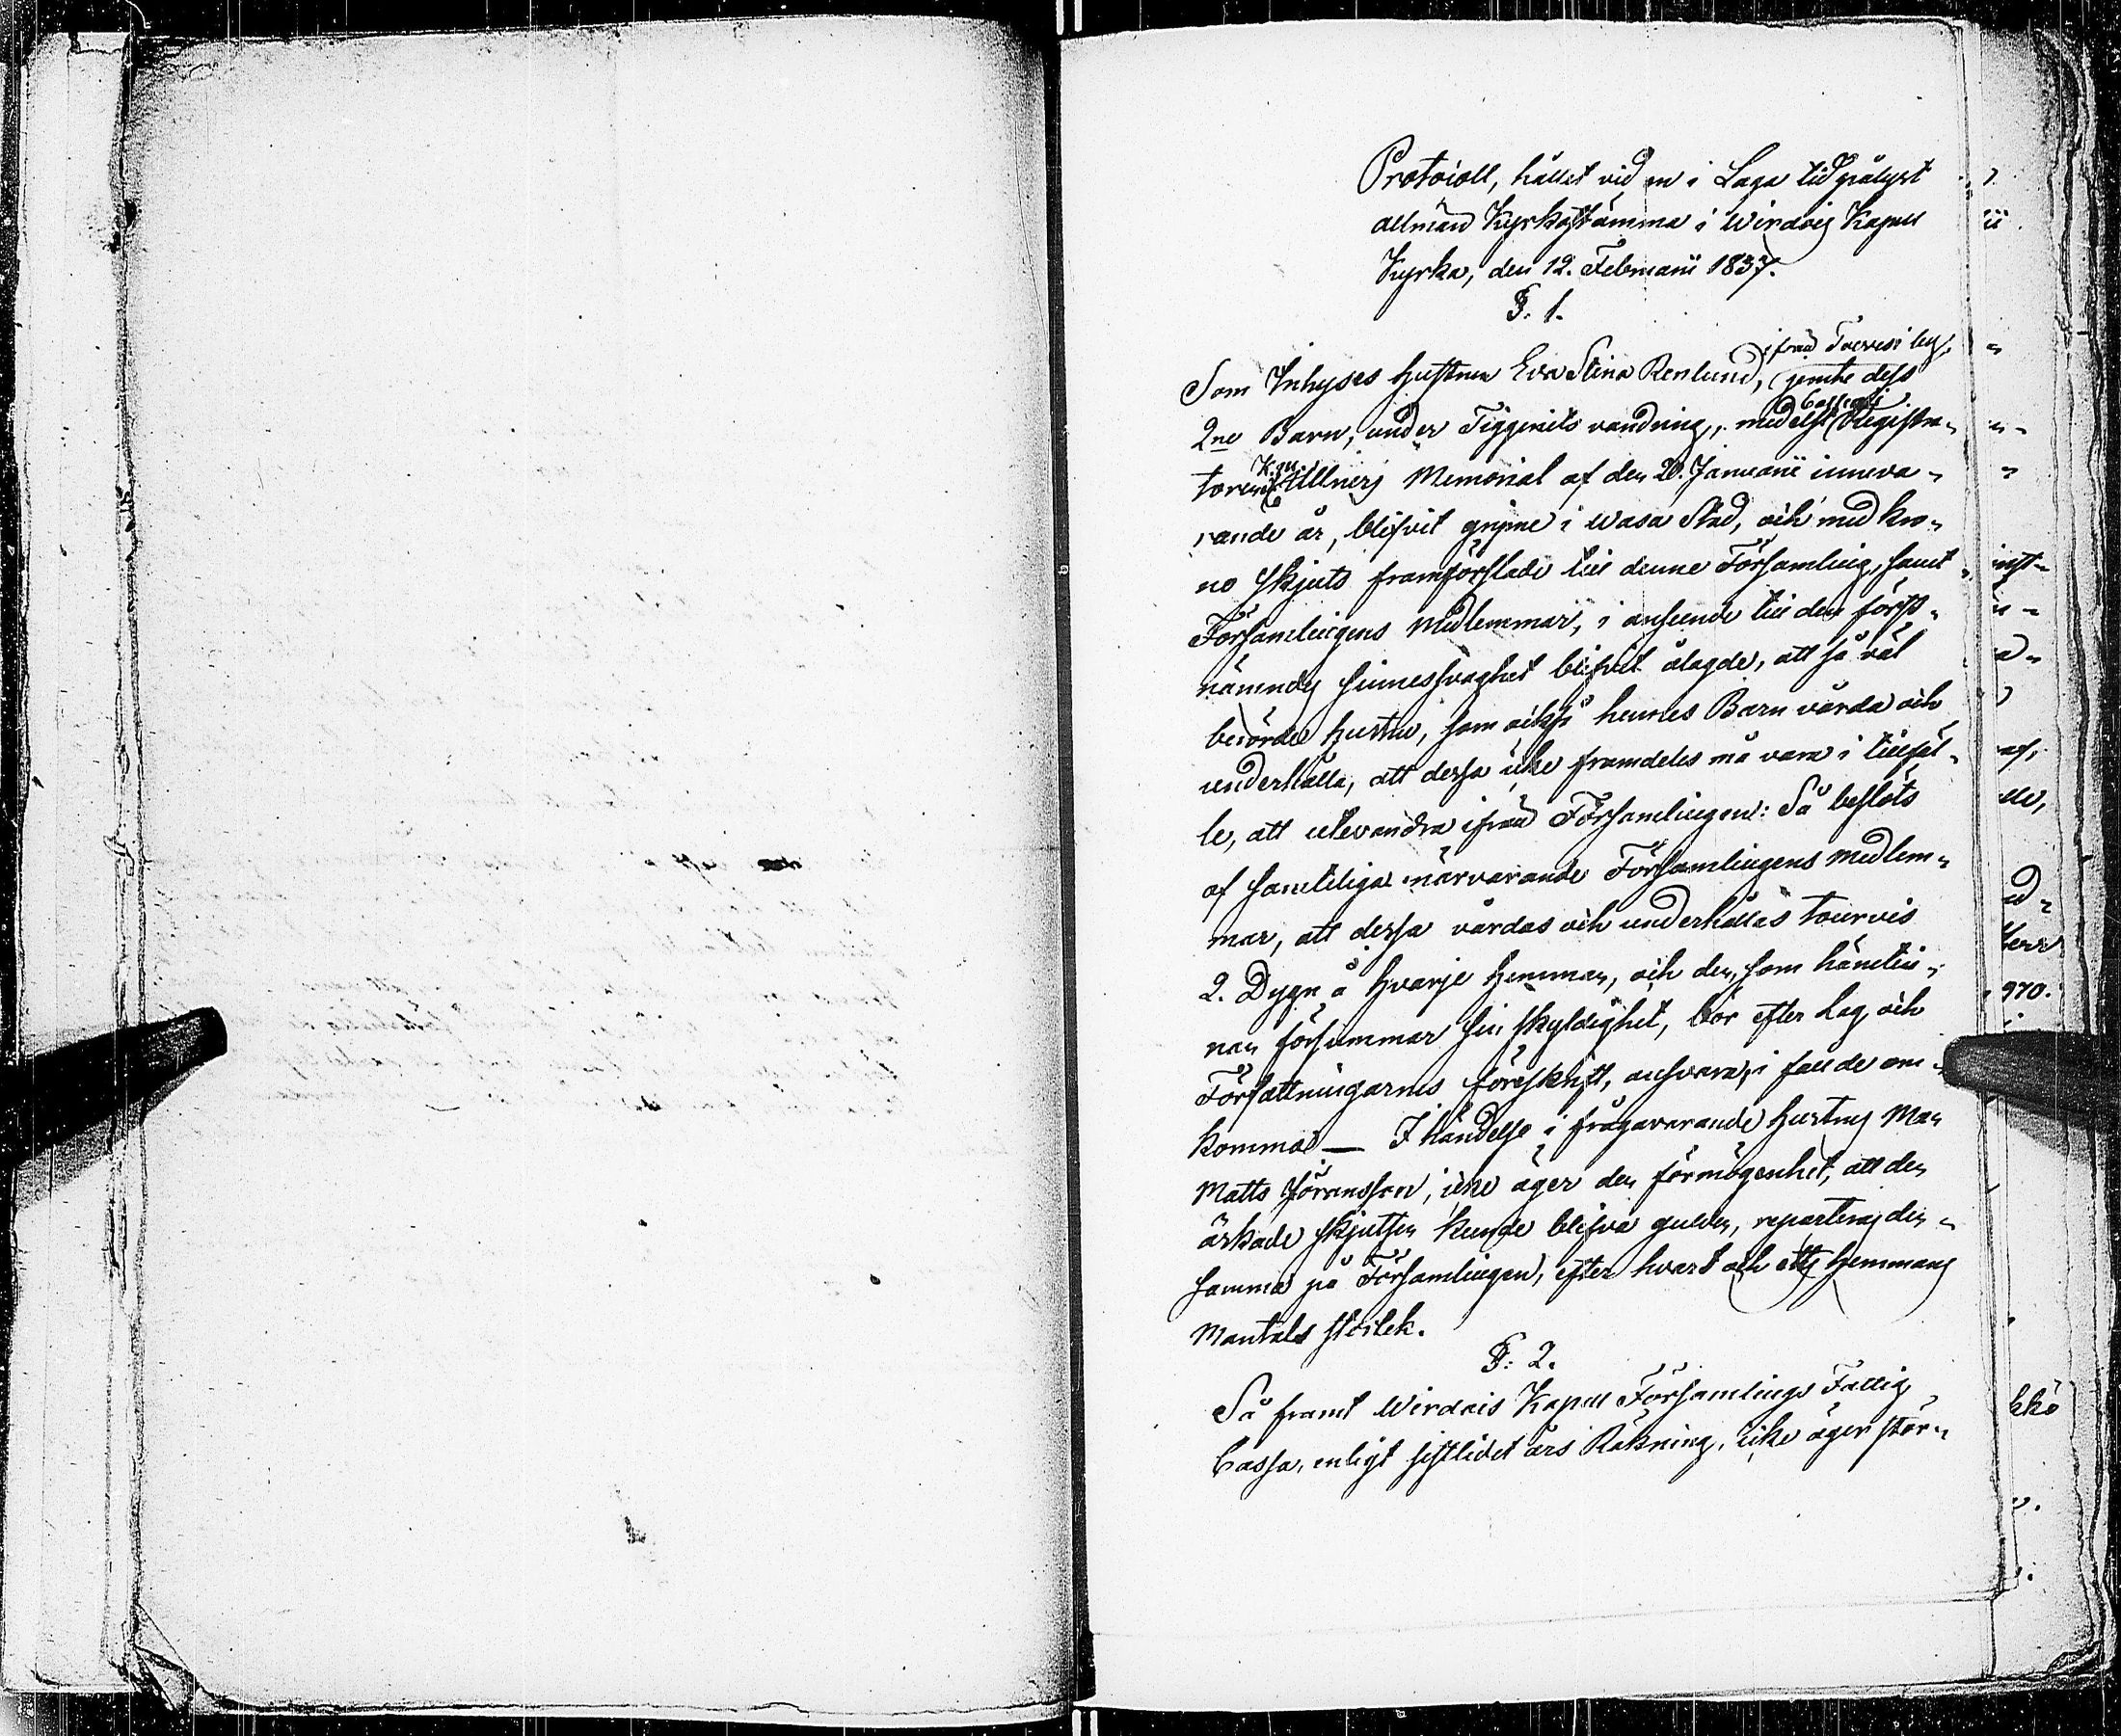 Protocoll, hållet vid en i Laga tid pålyst
allmän Kyrkostämma i Wirdois Kapell
Kyrka, den 12. Februarii 1837.
§. 1.
ifrån Toivesi by,
Som Inhyses Hustrun Eva Stina Renlund, jemte dess
2ne Barn, under Tiggeriets vandring, medelst Registra-
toren Ullners Memorial af den 20. Januarii inneva-
rande år, blifvit gripne i Wasa Stad, och med kro-
no skjuts framförslade till denne Församling, samt
Församlingens Medlemmar, i anseende till den först-
nämnds sinnessvaghet blifvit ålagde, att så väl
berörde hustru, som ock hennes Barn vårda och
underhålla, att dessa icke framdeles må vara i tillfäl-
le, att utvandra ifrån Församlingen: Så beslöts
af samtelige närvarande Församlingens medlem-
mar, att dessa vårdas och underhållas tourvis
2. Dygn å hvarje Hemman, och den, som häruti-
nan försummar sin skyldighet, bör efter Lag och
Författningarnes föreskrift, ansvara i
komma — I händelse i frågavarande Hustrus Man
Matts Göransson, icke äger den förmögenhet, att den
skjutsen kunde blifva gulden, reparteras den-
samma på Församlingen, efter hvart och etts Hemmans
Mantals storlek.
§. 2.
Så framt Wirdois Kapell Församlings Fattig
Cassa, enligt sistlidet års Räkning, icke äger stör-